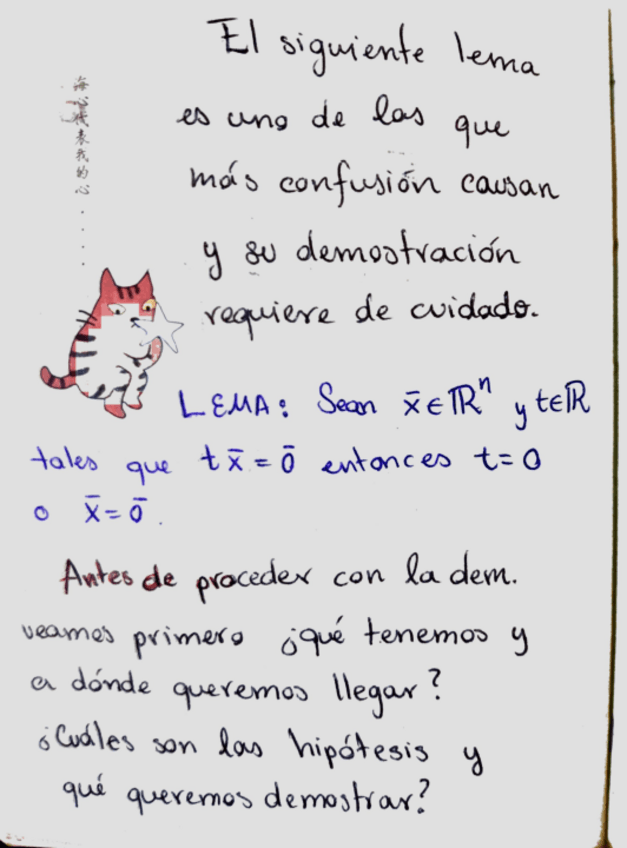 El siguiente lema
es uno de las que
más confusión causan
y su demostración
requiere de cuidado.
海心代表我的心....
LEMA: Sean x̄ ∈ ℝⁿ y t ∈ ℝ
tales que t x̄ = ō entonces t = 0
o x̄ = ō.
Antes de proceder con la dem.
veamos primero ¿qué tenemos y
a dónde queremos llegar?
¿Cuáles son las hipótesis y
qué queremos demostrar?